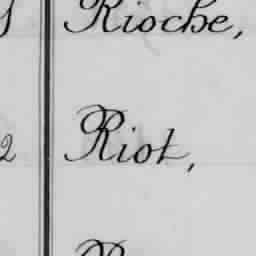 Rioche,
2 Riot,